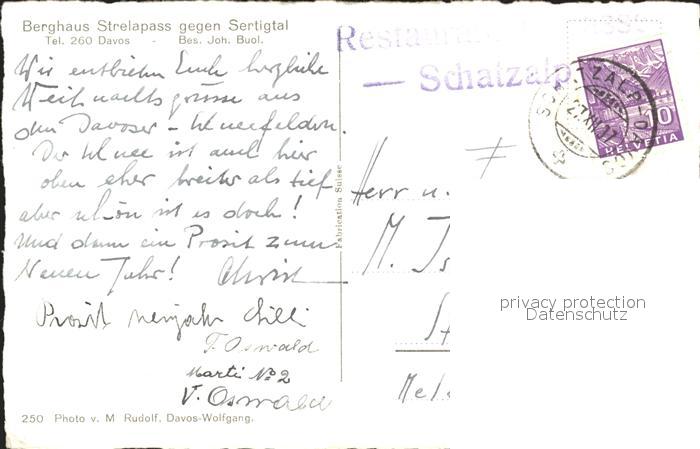 Berghaus Strelapass gegen Sertigtal
Tel. 260 Davos - Bes. Joh. Buol.
Wir entbieten Euch herzliche
Weihnachtsgrüsse aus
den Davoser-Schneefeldern.
Der Schnee ist auch hier
oben eher breiter als tief
aber schön ist es doch!
Und dann ein Prosit zum
Neuen Jahr! Christ
Prosit neujahr
T. Oswald
Marti No 2
V. Oswald
250 Photo v. M Rudolf, Davos-Wolfgang.
Fabrication Suisse
Restaurant
— Schatzalp
10
HELVETIA
Herr u.
M.
privacy protection
Datenschutz